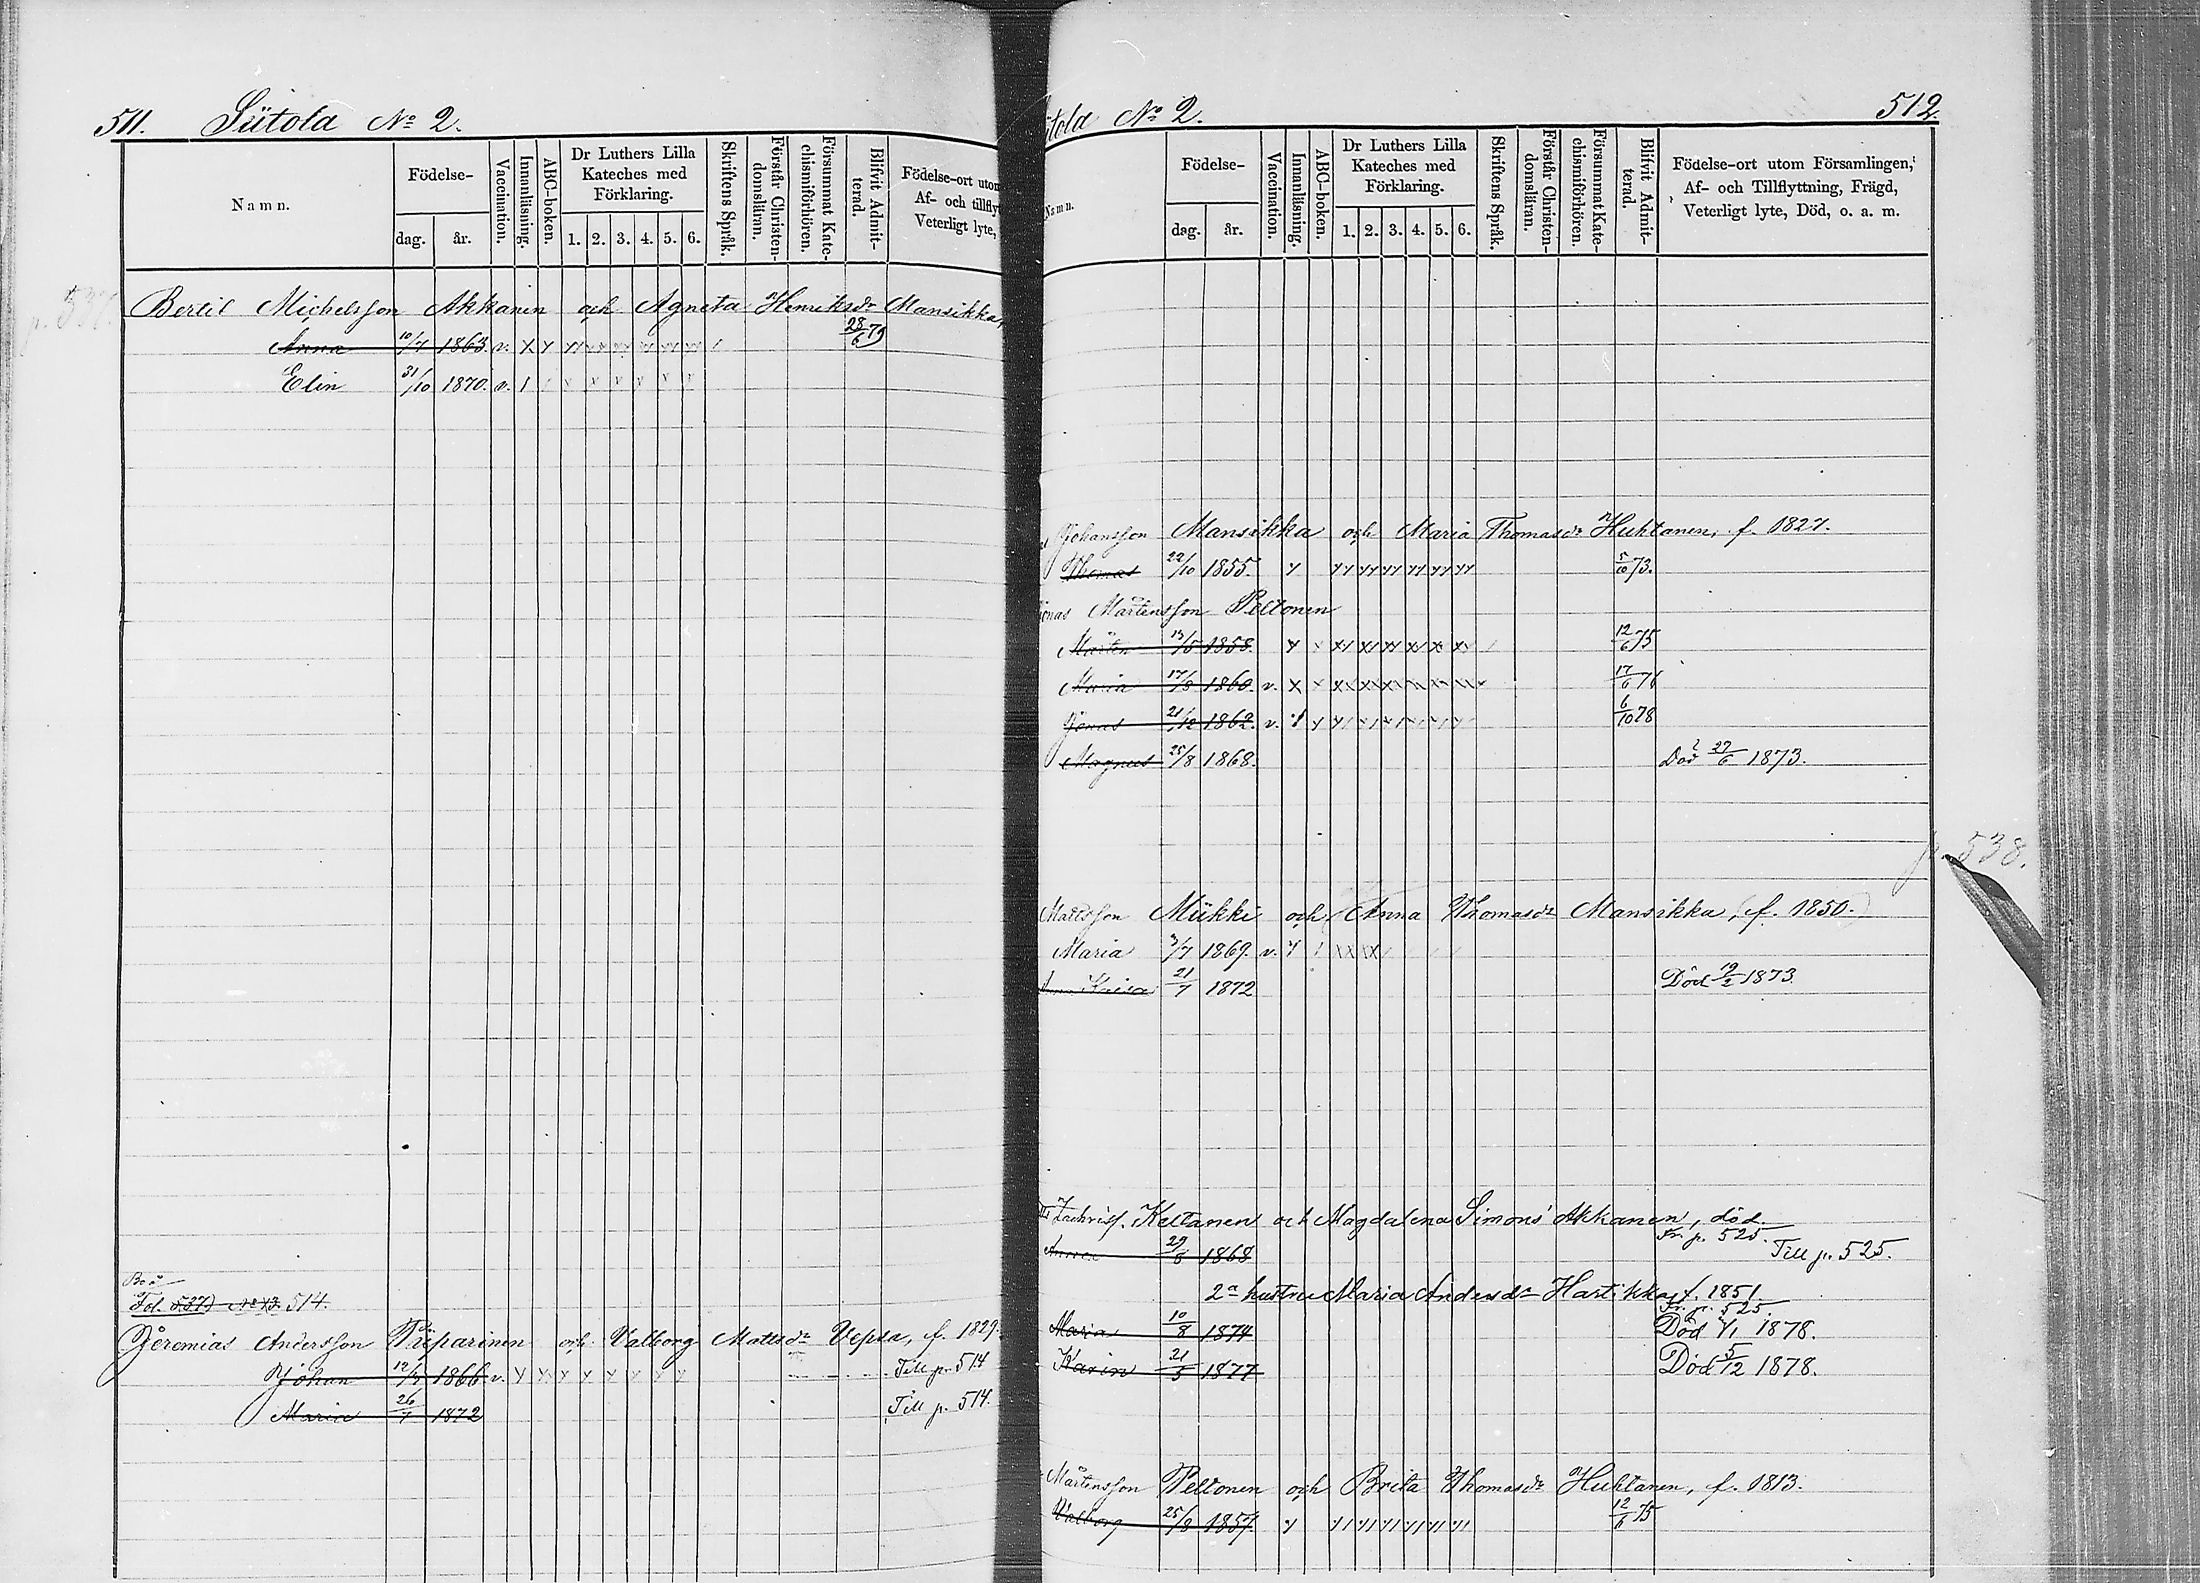 511. Siitola No 2.
Namn.
Födelse-
dag. år.
Vaccination.
Innanläsning.
ABC-boken.
Dr Luthers Lilla Kateches med Förklaring.
1. 2. 3. 4. 5. 6.
Skriftens Språk.
Förstår Christen-domsläran.
Försummat Kate-chismiförhören.
Blifvit Admit-terad.
Födelse-ort utom
Af- och tillfly
Veterligt lyte,
p. 537.
Bertil Michelsson Akkanen och Agneta Henriksdr Mansikka,
Anna 10/7 1863. v. 28/6 79
Elin 31/10 1870. v.
Fol. 537) No 13. 514.
Jeremias Andersson Piiparinen och Valborg Mattsdr Vepsa, f. 1829.
Johan 12/7 1866 v. Till p. 514
Maria 26/7 1872 Till p. 514.
itola No 2. 512.
Namn.
Födelse-
dag. år.
Vaccination.
Innanläsning.
ABC-boken.
Dr Luthers Lilla Kateches med Förklaring.
1. 2. 3. 4. 5. 6.
Skriftens Språk.
Förstår Christen-domsläran.
Försummat Kate-chismiförhören.
Blifvit Admit-terad.
Födelse-ort utom Församlingen,
Af- och Tillflyttning, Frägd,
Veterligt lyte, Död, o. a. m.
Johansson Mansikka och Maria Thomasdr Huhtanen, f. 1827.
Thomas 22/10 1855. 5/10 73.
Jonas Mårtensson Peltonen
Mårten 13/5 1858. 12/6 75
Maria 17/8 1860. v. 17/6 76
Jonas 21/12 1862. v. 6/10 78
Magnus 25/8 1868. Död 27/6 1873.
p. 538.
Mattsson Miikki och Anna Thomasdr Mansikka, (f. 1850.)
Maria 3/7 1869. v.
Anna Kaisa 21/7 1872 Död 19/2 1873.
Zachriss. Keltanen och Magdalena Simons Akkanen, död.
Fr. p. 525.
Anna 29/8 1868 Till p. 525.
2a hustru Maria Andersdr Hartikka, f. 1851
Fr. p. 525.
Maria 10/8 1874 Död 7/1 1878.
Karin 21/5 1877 Död 5/12 1878.
Mårtensson Peltonen och Brita Thomasdr Huhtanen, f. 1813.
Valborg 25/8 1857 12/6 75